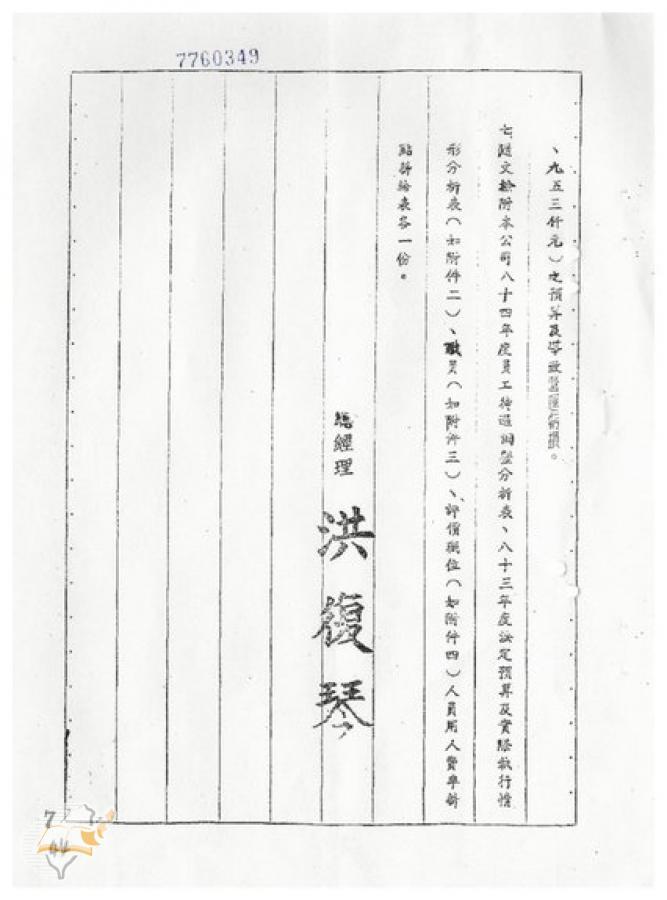 7760349
、九五三仟元)之預算及導致營運虧損。
七隨文檢附本公司八十四年度員工待遇調整分析表、八十三年度法定預算及實際執行情
形分析表(如附件二)、職員(如附件三)、評價職位(如附件四)人員用人費率薪
點薪給表各一份。
總經理 洪復琴